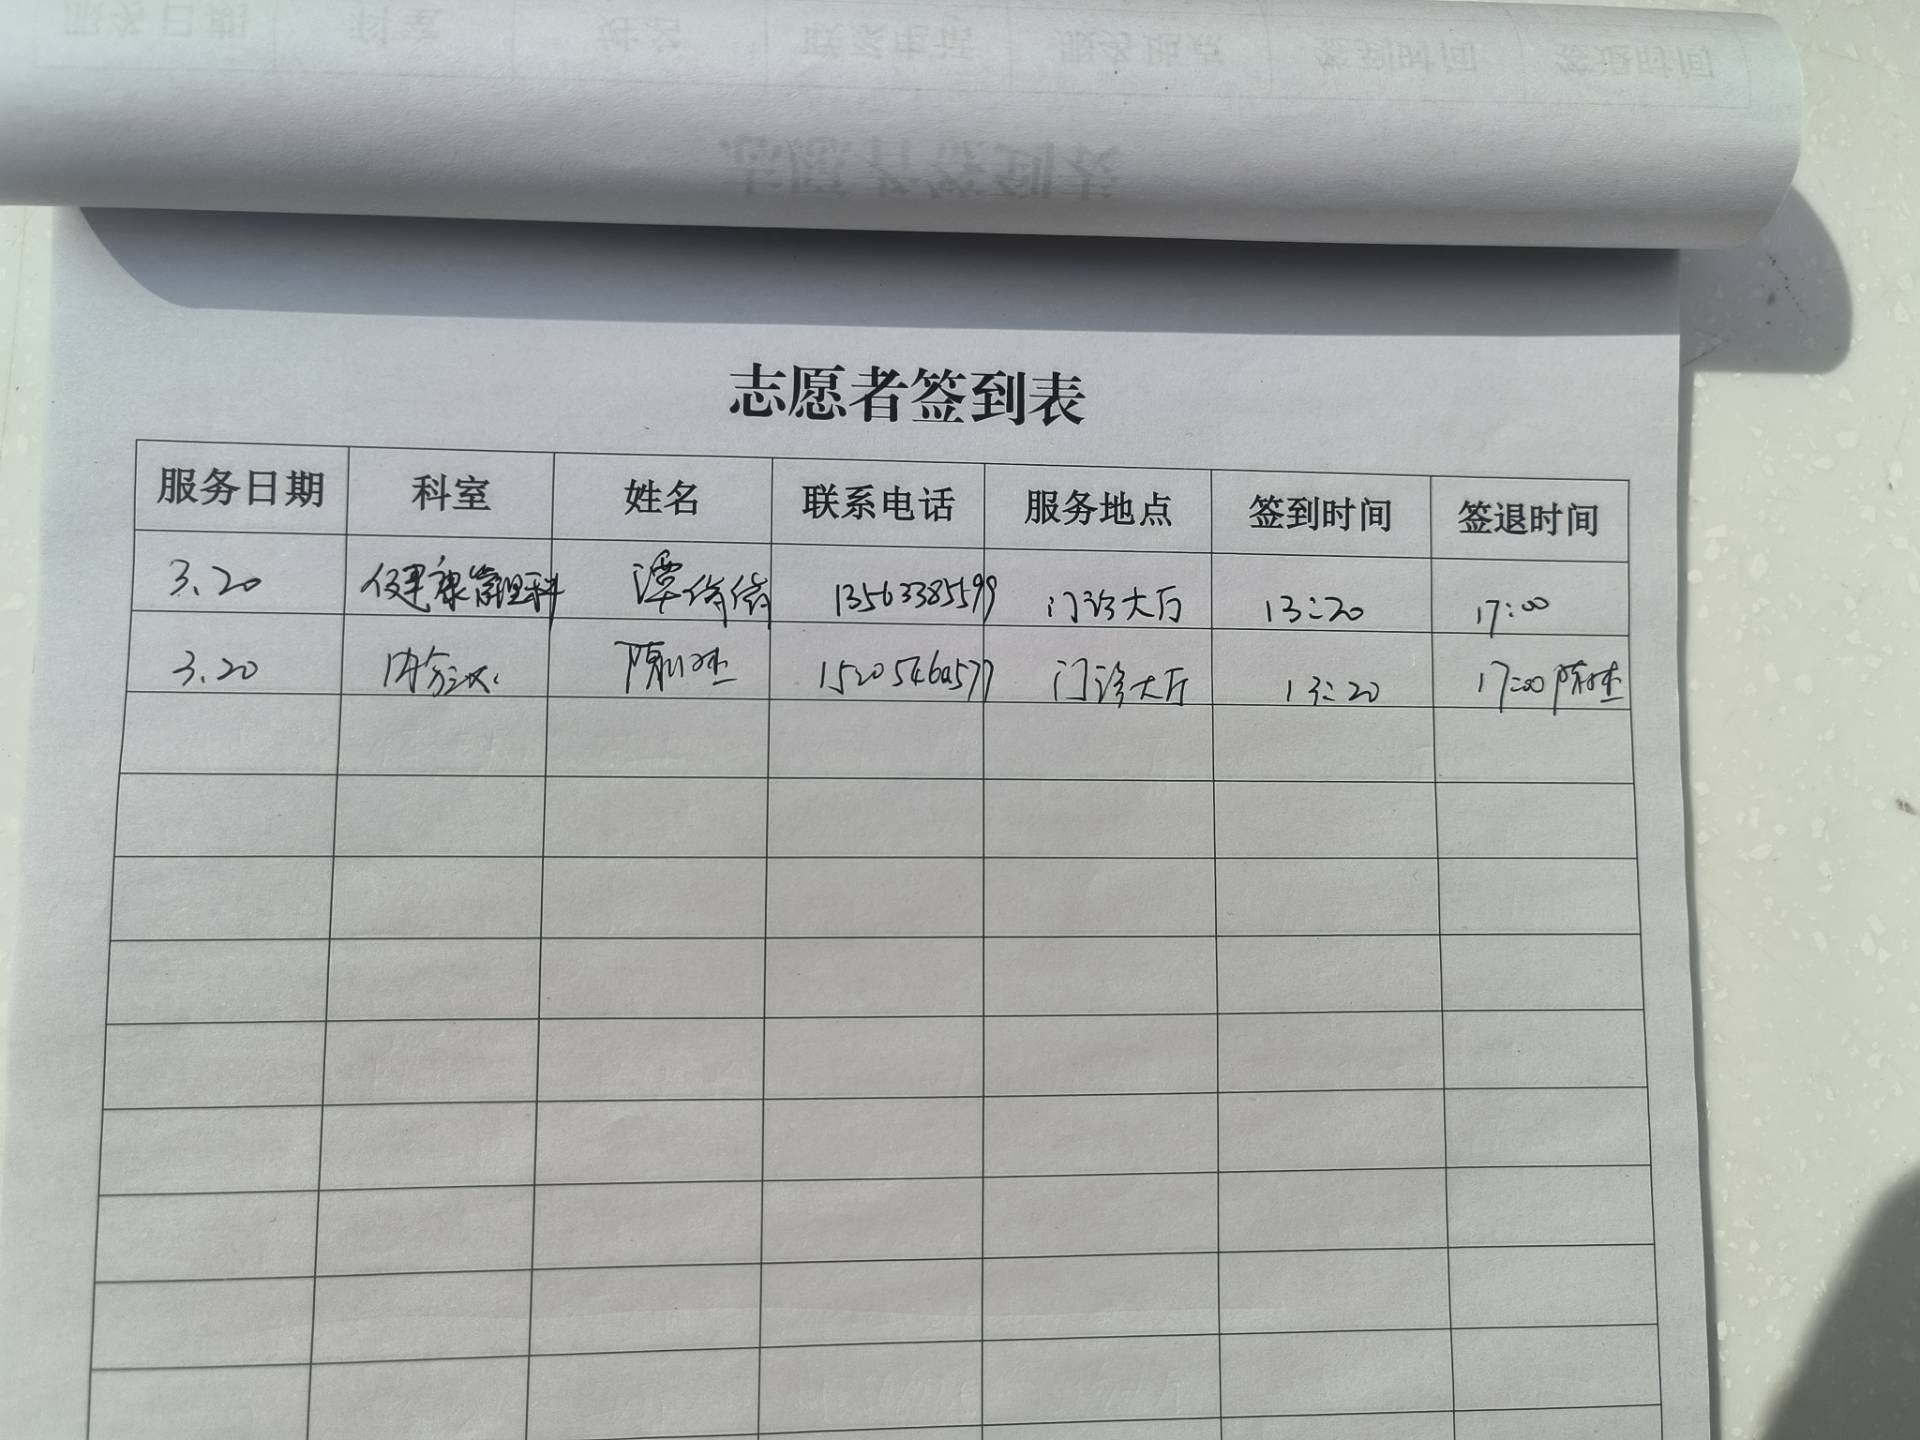 志愿者签到表
服务日期 科室 姓名 联系电话 服务地点 签到时间 签退时间
3.20 健康管理科 谭倩倩 13563385599 门诊大厅 13:20 17:00
3.20 内分泌 门诊大厅 13:20 17:00